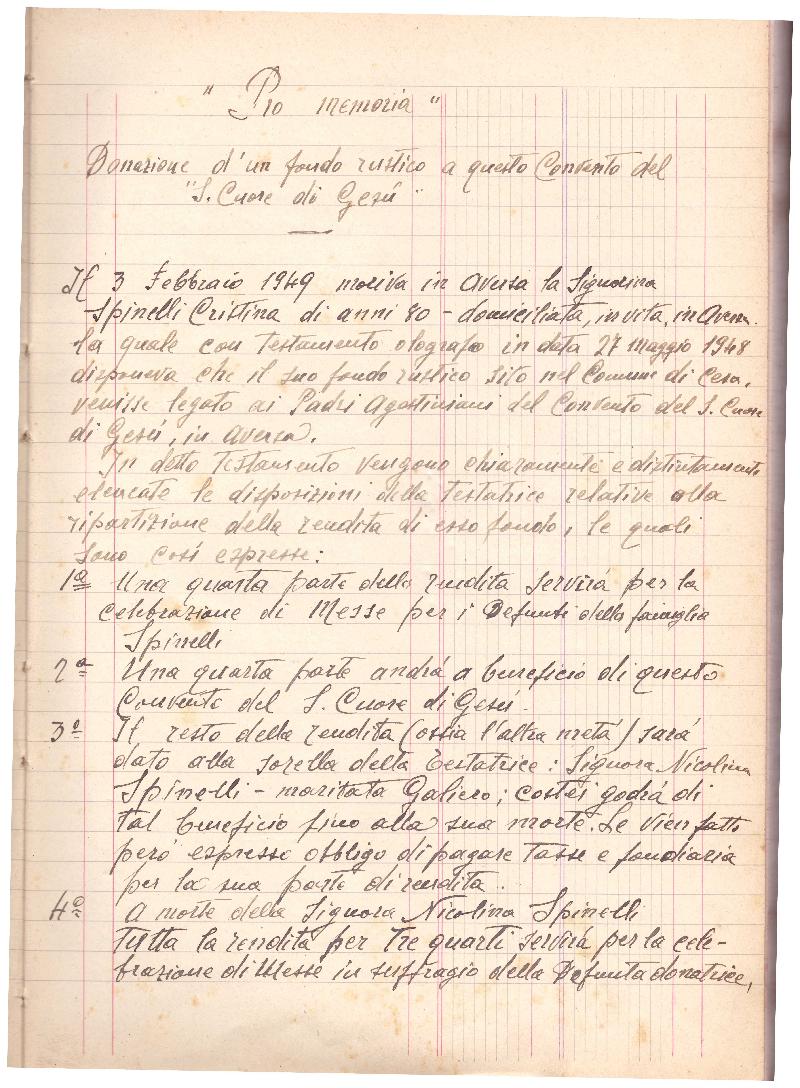 " Pro memoria "
Donazione d'un fondo rustico a questo Convento del
"S. Cuore di Gesù"
Il 3 Febbraio 1949 moriva in Aversa la Signorina
Spinelli Cristina di anni 80 - domiciliata, in vita, in Aversa.
la quale con testamento olografo in data 27 maggio 1948
disponeva che il suo fondo rustico sito nel Comune di Cesa,
venisse legato ai Padri Agostiniani del Convento del S. Cuore
di Gesù, in Aversa.
In detto testamento vengono chiaramente e distintamente
elencate le disposizioni della testatrice relative alla
ripartizione della rendita di esso fondo, le quali
sono così espresse:
1ª Una quarta parte della rendita servirà per la
celebrazione di Messe per i Defunti della famiglia
Spinelli
2ª Una quarta parte andrà a beneficio di questo
Convento del S. Cuore di Gesù.
3º Il resto della rendita (ossia l'altra metà) sarà
dato alla sorella della Testatrice: Signora Nicolina
Spinelli - maritata Galiero; costei godrà di
tal beneficio fino alla sua morte. Le vien fatto
però espresso obbligo di pagare tasse e fondiaria
per la sua parte di rendita.
4º A morte della Signora Nicolina Spinelli
tutta la rendita per tre quarti servirà per la cele-
brazione di Messe in suffragio della Defunta donatrice,